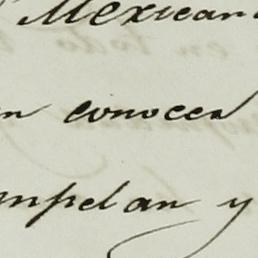 Mexican
n conocer
mpelan y